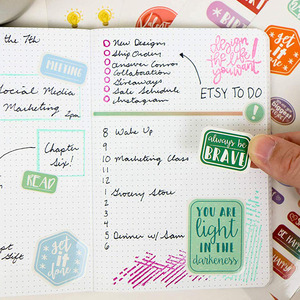 the 7th
MEETING
Social Media
Marketing
2pm
Chapter
Six!
READ
get
it
done
New Designs
Ship Orders
Answer Convos
Collaboration
Giveaways
Sale Schedule
Instagram
design
the life
you
want!
ETSY TO DO
!
8 Wake Up
9
10 Marketing Class
11
12
1 Grocery Store
2
3
4
5 Dinner w/ Sam
6
always be
BRAVE
YOU ARE
light
IN THE
darkness
Gift
BE HAPPY